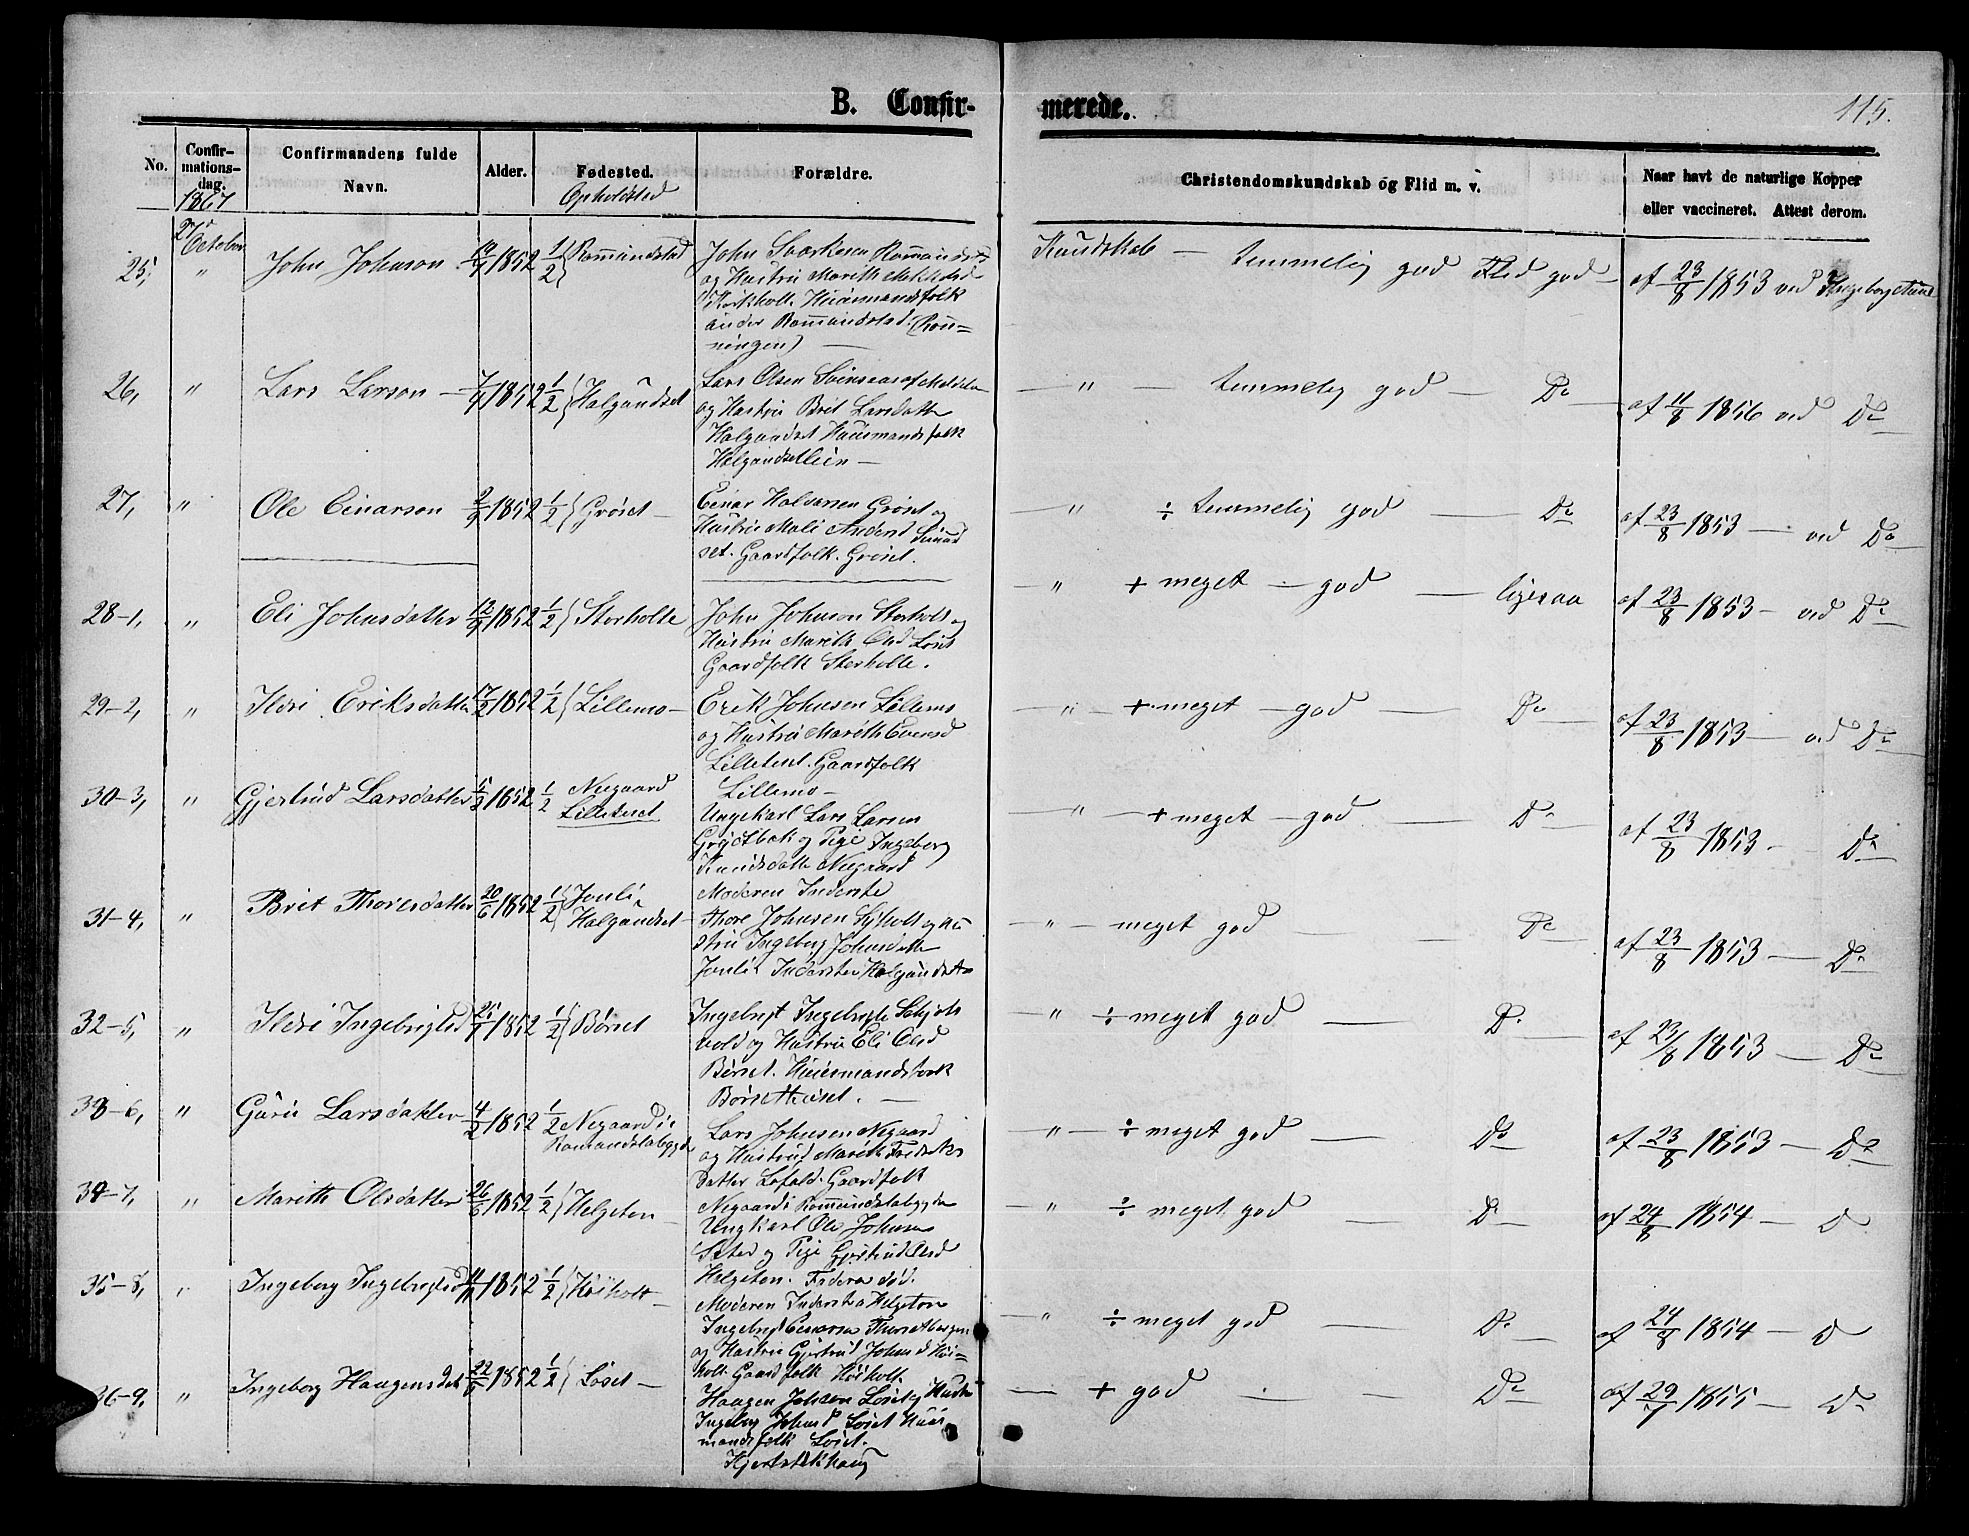 B. Confir-
merede.
115.
No.
Confir-
mations-
dag.
1867
Confirmandens fulde
Navn.
Alder.
Fødested.
Opholdsted
Forældre.
Christendomskundskab og Flid m. v.
Naar havt de naturlige Kopper
eller vaccineret. Attest derom.
October
25, " John Johnson 1852 1/2 Romundstad
og Hustru Marith
Huusmandsfolk
under Romundstad (Røn=
ningen)
Kundskab — temmelig god Flid god — af 23/8 1853 ved Ingeborg
26, " Lars Larson — 7/9 1852 1/2 Halgundset
Lars Olsen
og Hustru Brit Larsdatter
Halgundset Huusmandsfolk
— " — temmelig god — Do af 11/8 1856 ved Do
27, " Ole Einarson 2/9 1852 1/2 Grøset —
Einar Halvorsen Grøset og
Hustru Mali Andersd Sund
set. Gaardfolk. Grøset.
— " ÷ temmelig god — Do af 23/8 1853 — ved Do
28-1, " Eli Johnsdatter 12/9 1852 1/2 Storholte
John Johnson Storholt og
Hustru Marith Olsd Løset
Gaardfolk Storholte.
— " + meget — god — ligesaa af 23/8 1853 — ved Do
29-2, " Ildri Eriksdatter 17/2 1852 1/2 Lillemo —
Erik Johnsen Lillemo
og Hustru Marith Evensd
Lilleteret. Gaardfolk
Lillemo —
— " — + meget — god — Do af 23/8 1853 — ved Do
30-3, " Gjertrud Larsdatter 1852 1/2 Neegaard
Lilleteret
Ungekarl Lars Larsen
og Pige Ingeborg
Knudsdatter Neegaard
Moderen Inderste
— " — + meget — god — Do af 23/8 1853 — Do
31-4, " Brit Thoresdatter 20/6 1852 1/2 Jonli
Halgundset —
Thore Johnsen og Hu
stru Ingeborg Johnsdatter
Jonli Inderster Halgundset
— " — meget god — Do af 23/8 1853 — Do
32-5, " Ildri Ingebrigtsd 1852 1/2 Børset
Ingebrigt Ingebrigts Schjøls
vold og Hustru Eli Olsd
Børset. Huusmandsfolk
— " ÷ meget god — Do af 23/8 1853 — Do
33-6, " Guru Larsdatter 4/2 1852 1/2 Negaard i
Romundstabygden
Lars Johnsen Negaard
og Hustru Marith Fredriks
datter Lofald. Gaardfolk
Negaard i Romundstabygden
— " — ÷ meget god — Do af 23/8 1853 — Do
34-7, " Marith Olsdatter 26/6 1852 1/2 Helgeton —
Ungkarl Ole Johnsen
Sæter og Pige Gjertrud Olsd
Helgeton. Faderen død.
Moderen Inderste Helgeton
— " ÷ meget god — Do af 24/8 1854 — Do
35-8, Ingeborg Ingebrigtsd 1852 1/2 Høiholt —
Ingebrigt Einarsen
og Hustru Gjertrud Johnsd Høi=
holt Gaardfolk Høiholt.
— " ÷ meget god — Do af 24/8 1854 — Do
36-9, " Ingeborg Haagensdat 1852 1/2 Løset —
Haagen Johnsen Løset og Hustru
Ingeborg Johnsd Løset Huus
mandsfolk Løset.
— + god — Do af 29/7 1855 — Do